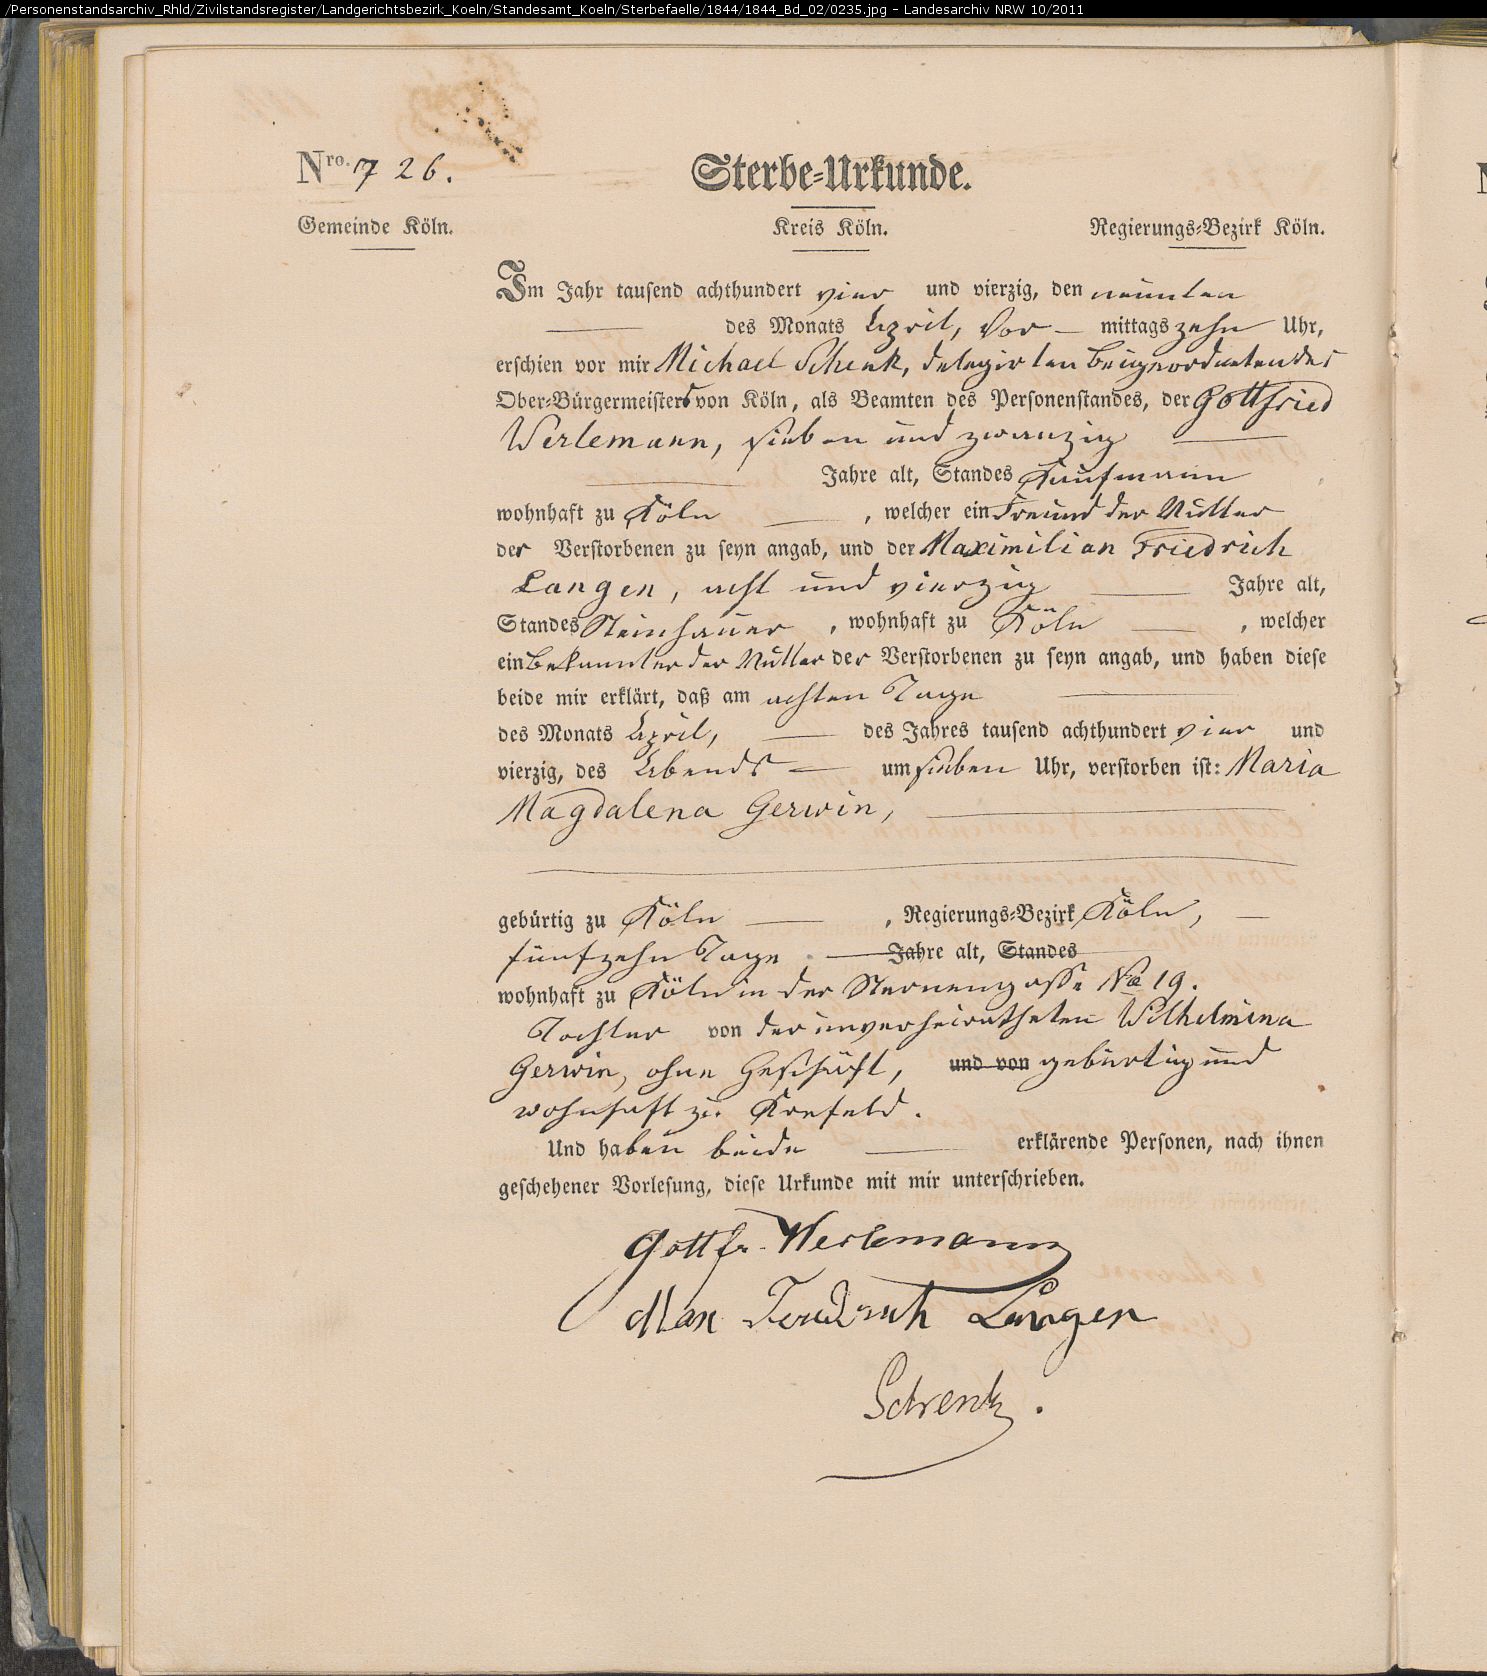 /Personenstandsarchiv_Rhld/Zivilstandsregister/Landgerichtsbezirk_Koeln/Standesamt_Koeln/Sterbefaelle/1844/1844_Bd_02/0235.jpg - Landesarchiv NRW 10/2011
Nro. 726. Sterbe-Urkunde.
Gemeinde Köln. Kreis Köln. Regierungs-Bezirk Köln.
Im Jahr tausend achthundert vier und vierzig, den neunten
des Monats April, Vor- mittags zehn Uhr,
erschien vor mir Michael Schenk, delegirten Beigeordneten des
Ober-Bürgermeisters von Köln, als Beamten des Personenstandes, der Gottfried
Werlemann, sieben und zwanzig
Jahre alt, Standes Kaufmann
wohnhaft zu Köln, welcher ein Freund der Mutter
der Verstorbenen zu seyn angab, und der Maximilian Friedrich
Langen, acht und vierzig Jahre alt,
Standes Steinhauer, wohnhaft zu Köln, welcher
ein Bekannter der Mutter der Verstorbenen zu seyn angab, und haben diese
beide mir erklärt, daß am achten Tage
des Monats April, des Jahres tausend achthundert vier und
vierzig, des Abends um sieben Uhr, verstorben ist: Maria
Magdalena Gerwin,
gebürtig zu Köln, Regierungs-Bezirk Köln,
fünfzehn Tage Jahre alt, Standes
wohnhaft zu Köln in der Sternengasse No 19.
Tochter von der unverheiratheten Wilhelmina
Gerwin, ohne Geschäft, und von gebürtig und
wohnhaft zu Krefeld.
Und haben beide erklärende Personen, nach ihnen
geschehener Vorlesung, diese Urkunde mit mir unterschrieben.
Gottfr. Werlemann
Max Friedrich Langen
Schenk.